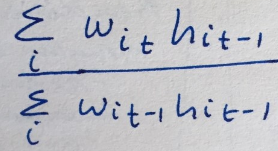 Σ_i w_{it} h_{it-1}
Σ_i w_{it-1} h_{it-1}